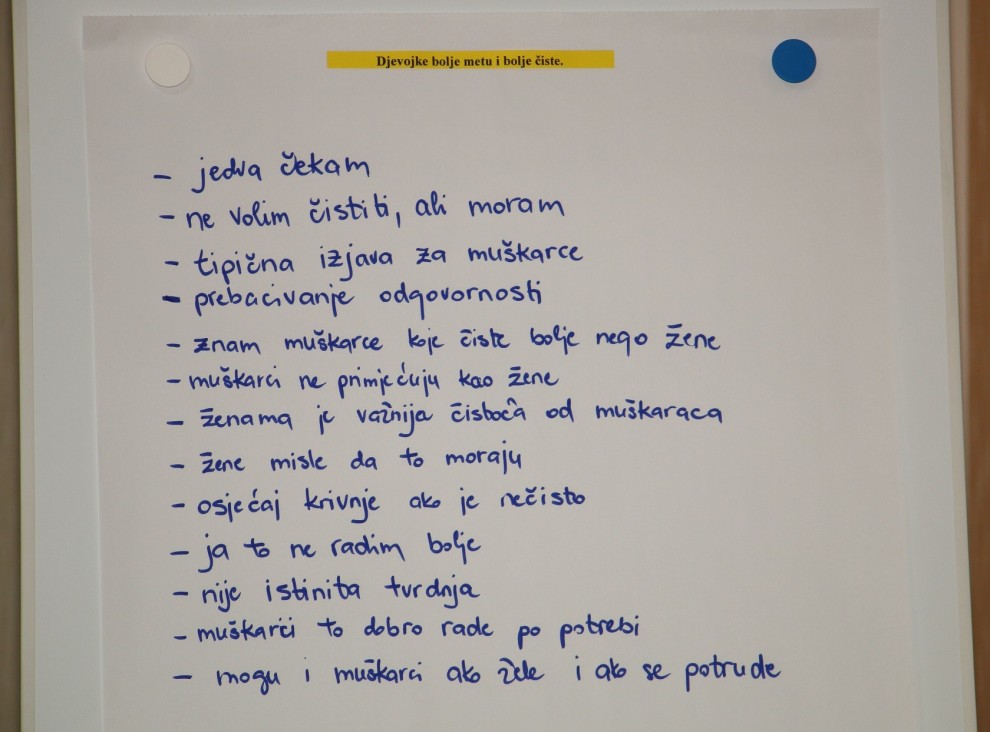 Djevojke bolje metu i bolje čiste.
- jedva čekam
- ne volim čistiti, ali moram
- tipična izjava za muškarce
- prebacivanje odgovornosti
- znam muškarce koje čiste bolje nego žene
- muškarci ne primjećuju kao žene
- ženama je važnija čistoća od muškaraca
- žene misle da to moraju
- osjećaj krivnje ako je nečisto
- ja to ne radim bolje
- nije istinita tvrdnja
- muškarci to dobro rade po potrebi
- mogu i muškarci ako žele i ako se potrude